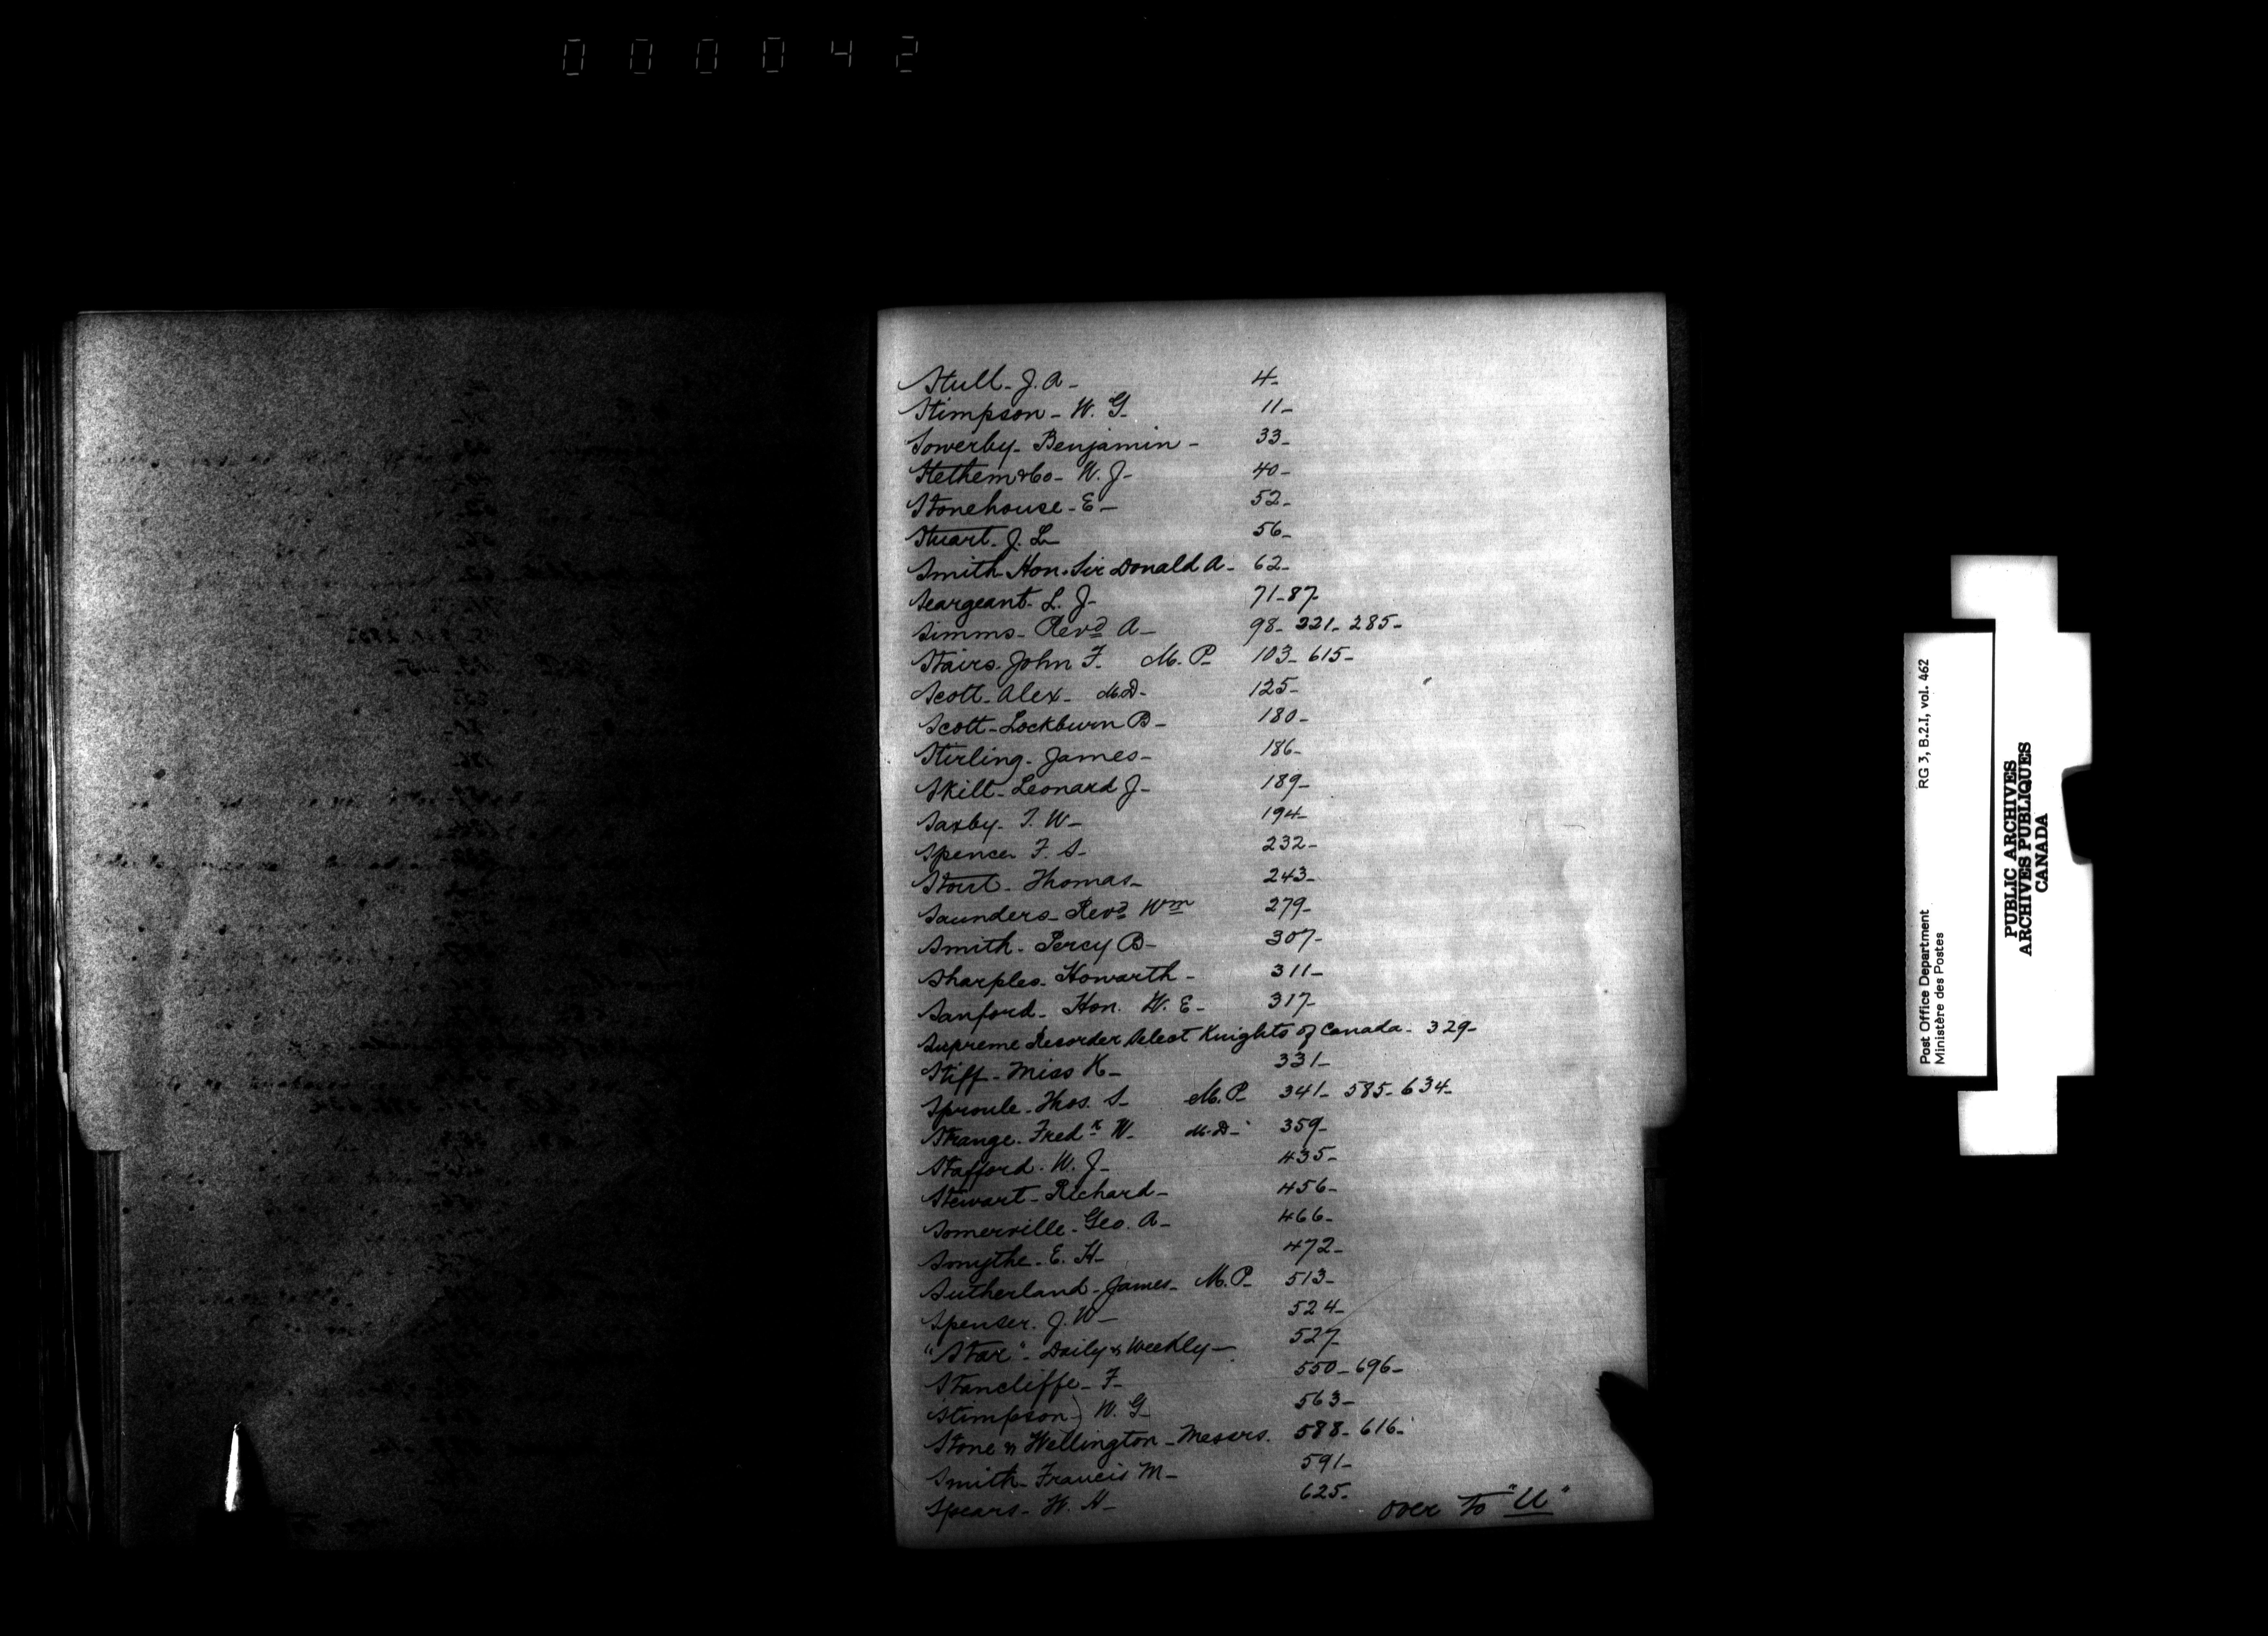 000042
Stull - J. A - 4 -
Stimpson - W. G - 11 -
Sowerby - Benjamin - 33 -
Stethem & Co - W. J - 40 -
Stonehouse - E - 52 -
Stuart - J. L - 56 -
Smith Hon. Sir Donald A - 62 -
Seargeant - L. J - 71 - 87 -
Simms - Revd A - 98 - 221 - 285 -
Stairs - John F. M. P - 103 - 615 -
Scott - Alex - M.D - 125 -
Scott - Lockburn B - 180 -
Stirling - James - 186 -
Skill - Leonard J - 189 -
Saxby - T. W - 194 -
Spencer F. S - 232 -
Stout - Thomas - 243 -
Saunders - Revd Wm 279 -
Smith - Percy B - 307 -
Sharples - Howarth - 311 -
Sanford - Hon. W. E - 317 -
Supreme Recorder Select Knights of Canada - 329 -
Stiff - Miss K - 331 -
Sproule - Thos. S - M.P - 341 - 585 - 634 -
Strange - Fredk W - M.D - 359 -
Stafford - W. J - 435 -
Stewart - Richard - 456 -
Somerville - Geo. A - 466 -
Smythe - E. H - 472 -
Sutherland - James - M.P - 513 -
Spenser - J. W - 524 -
"Star" - Daily & Weekly - 527 -
Stancliffe - F - 550 - 696 -
Stimpson) W. G - 563 -
Stone & Wellington - Messrs. 588 - 616 -
Smith - Francis M - 591 -
Spears - W. H - 625 -
over to "U"
Post Office Department RG 3, B.2.I, vol. 462
Ministère des Postes
PUBLIC ARCHIVES
ARCHIVES PUBLIQUES
CANADA